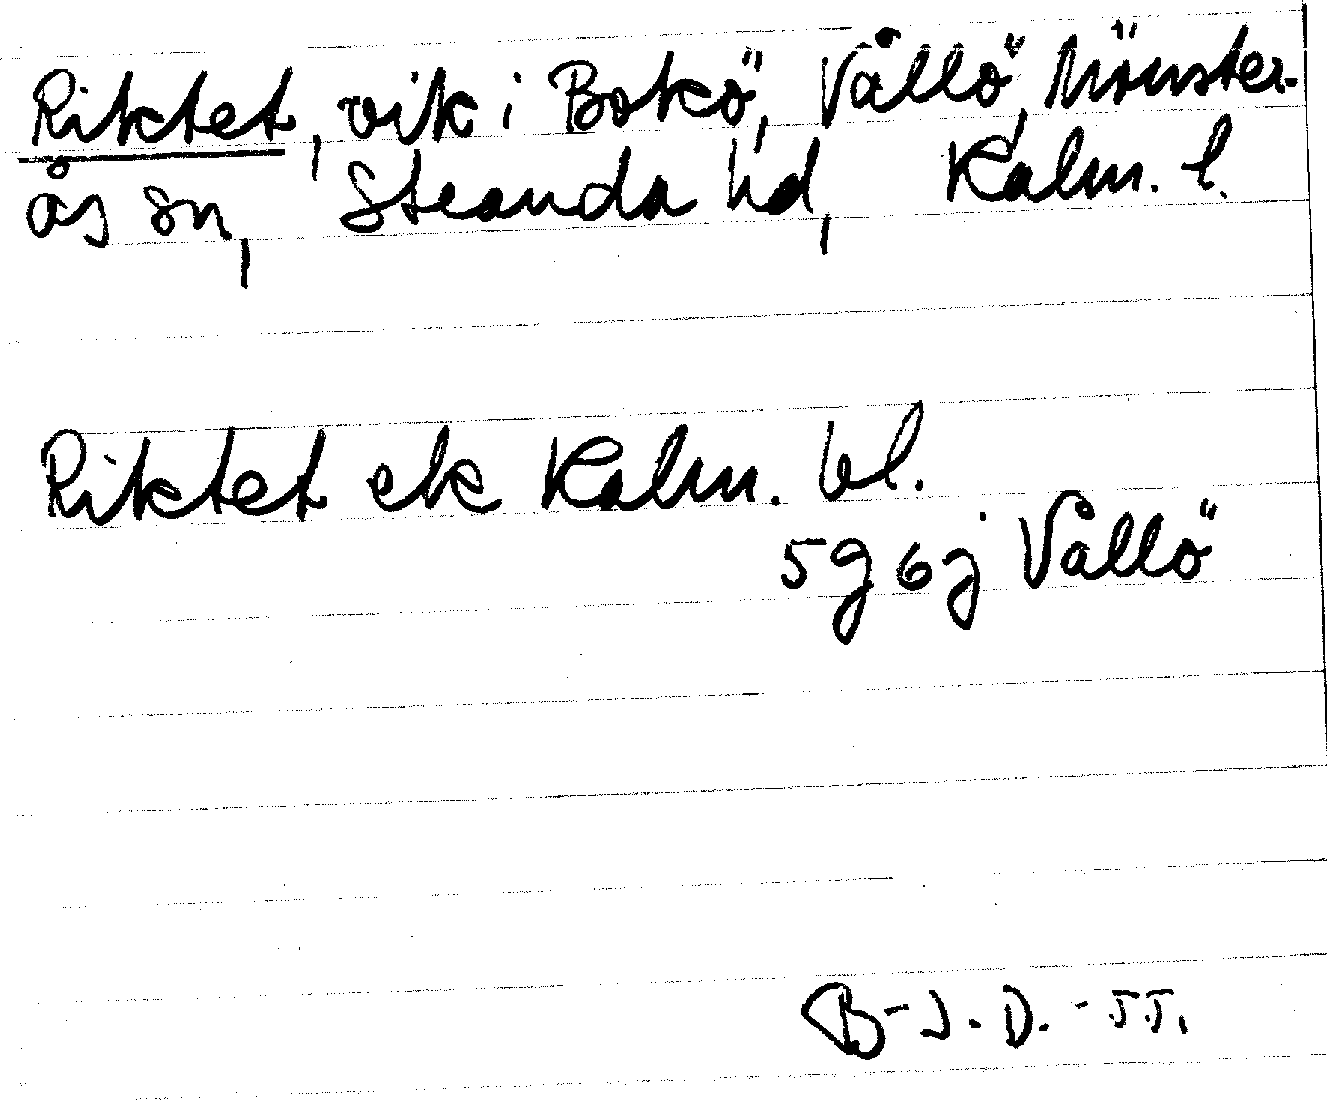 Riktet, vik i Bokö, Vållö, Mönster-
ås sn, Stranda hd, Kalm. l.
Riktet ek Kalm. bl.
5g 6j Vållö
B-J.D. - 55.